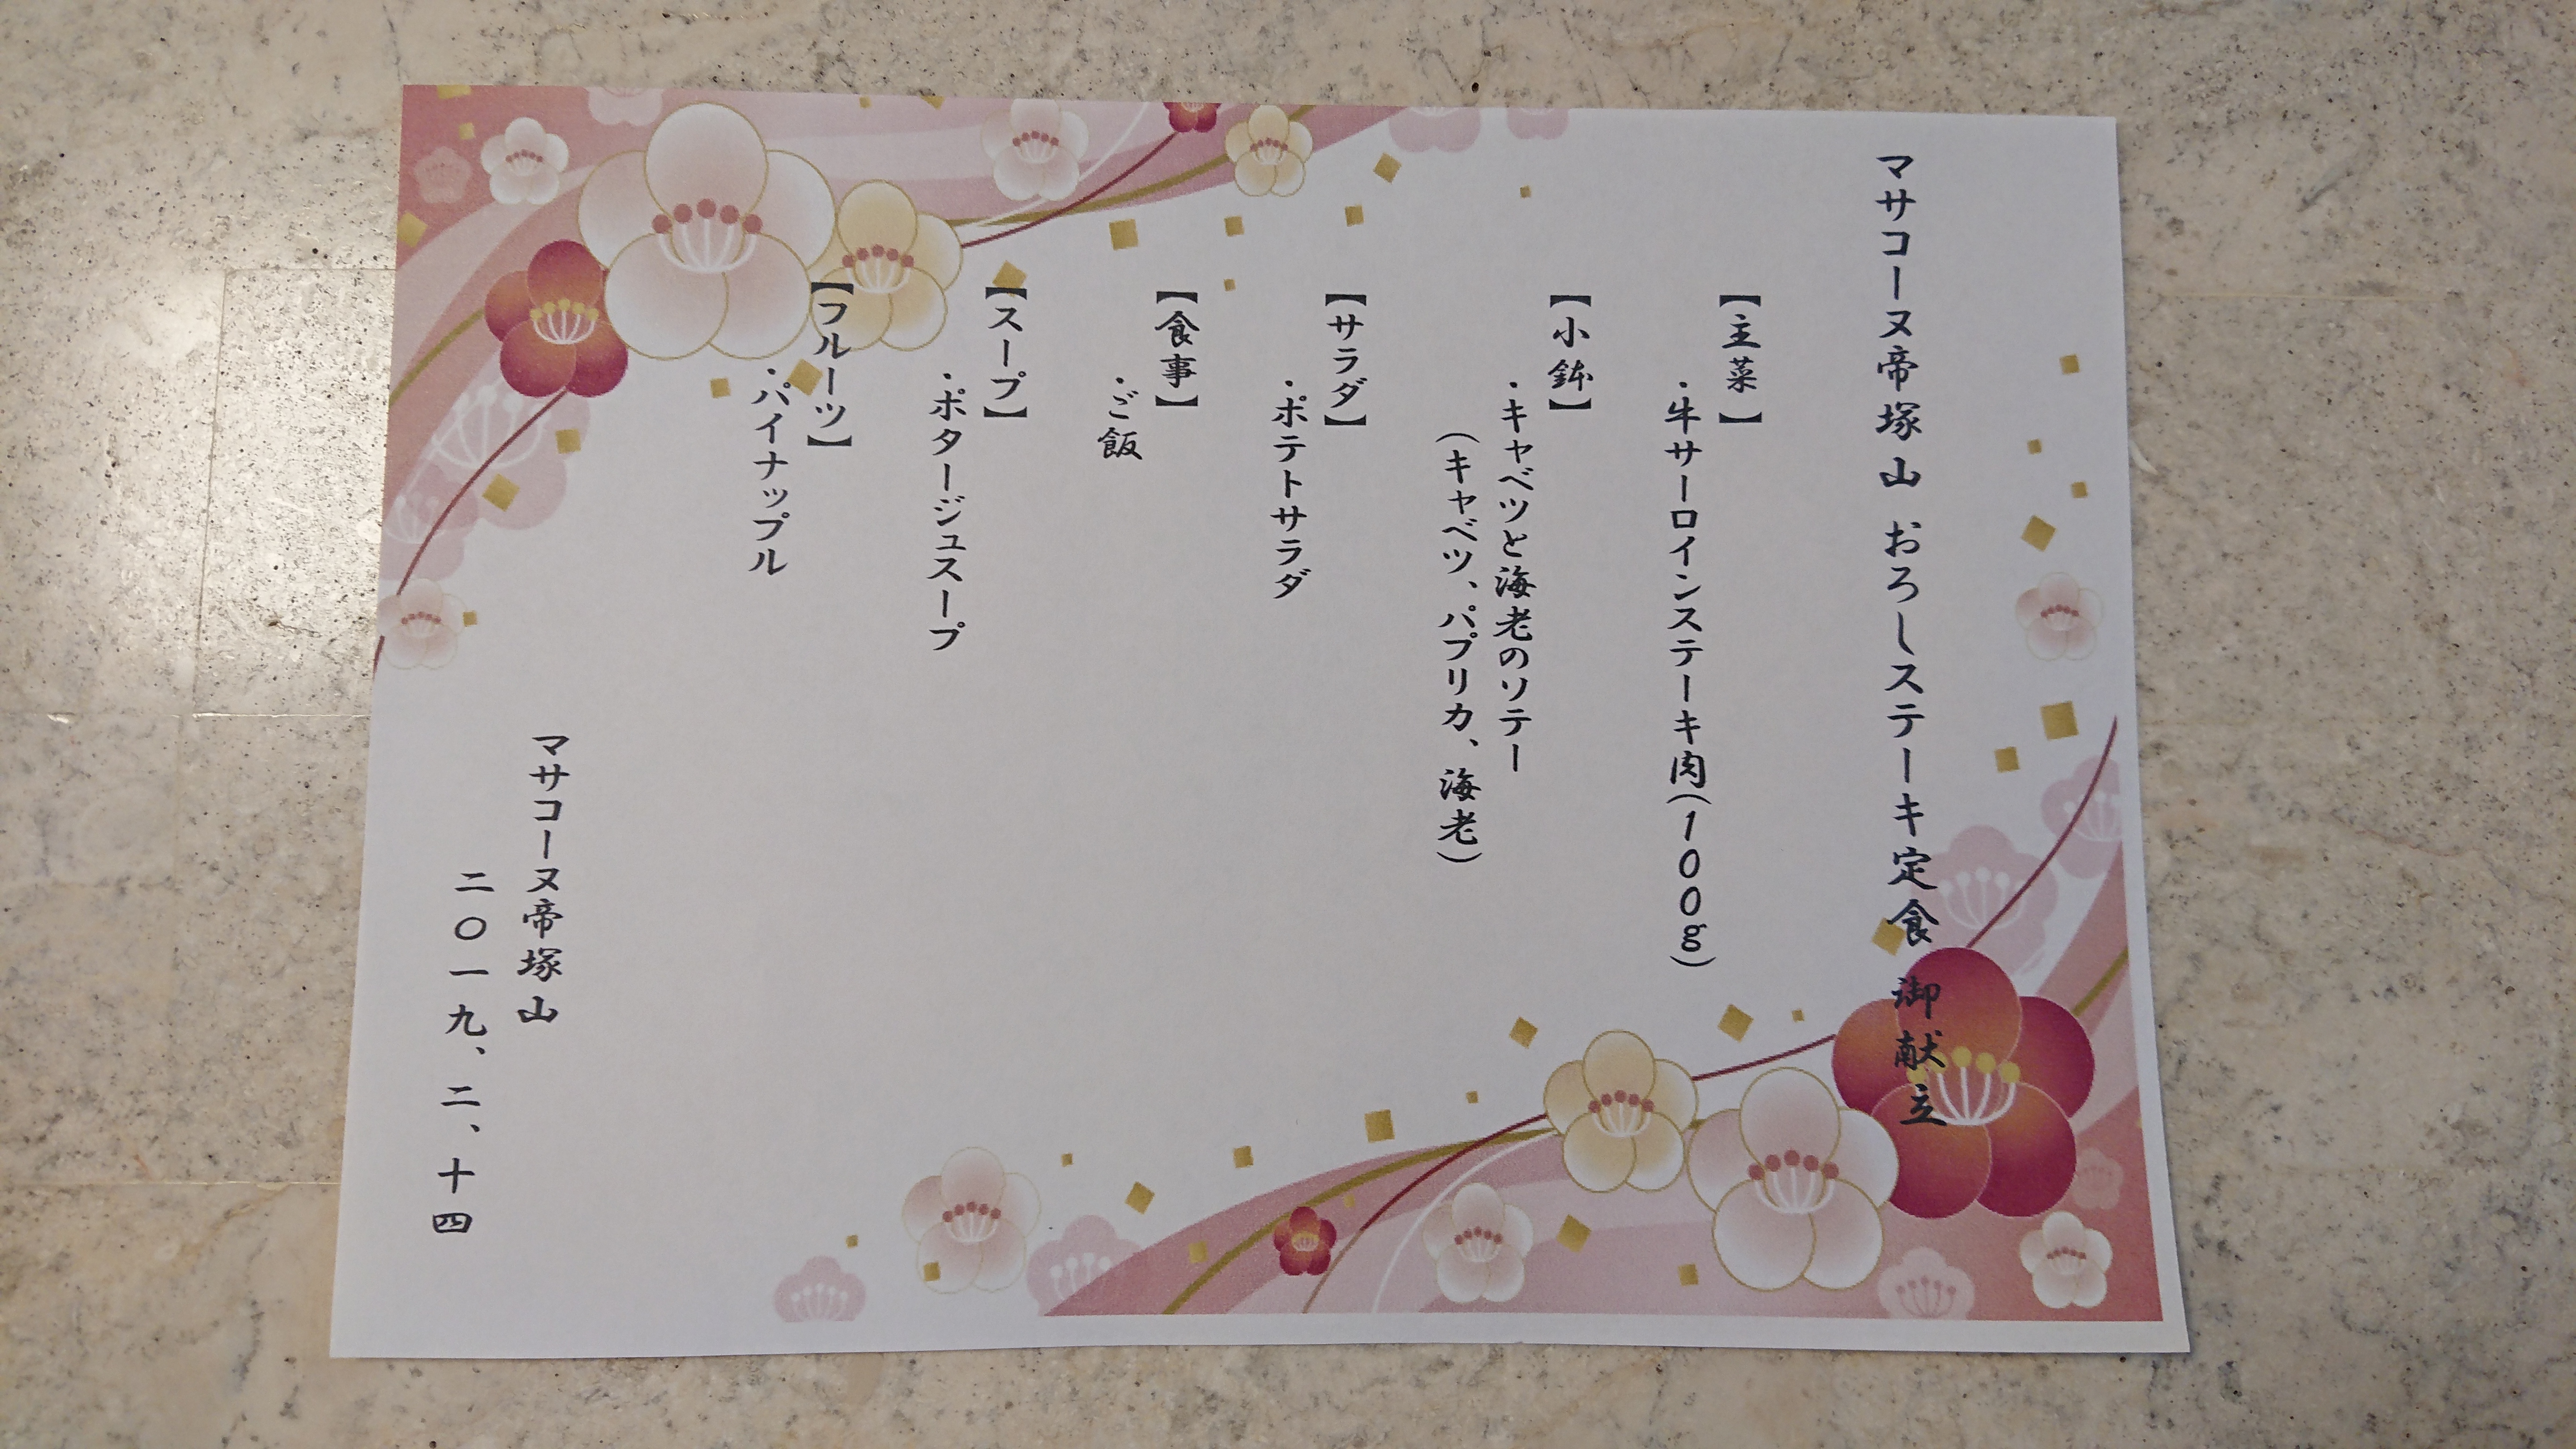 マサコーヌ帝塚山 おろしステーキ定食 御献立
【主菜】
・牛サーロインステーキ肉(100g)
【小鉢】
・キャベツと海老のソテー
(キャベツ、パプリカ、海老)
【サラダ】
・ポテトサラダ
【食事】
・ご飯
【スープ】
・ポタージュスープ
【フルーツ】
・パイナップル
マサコーヌ帝塚山
二〇一九、二、十四